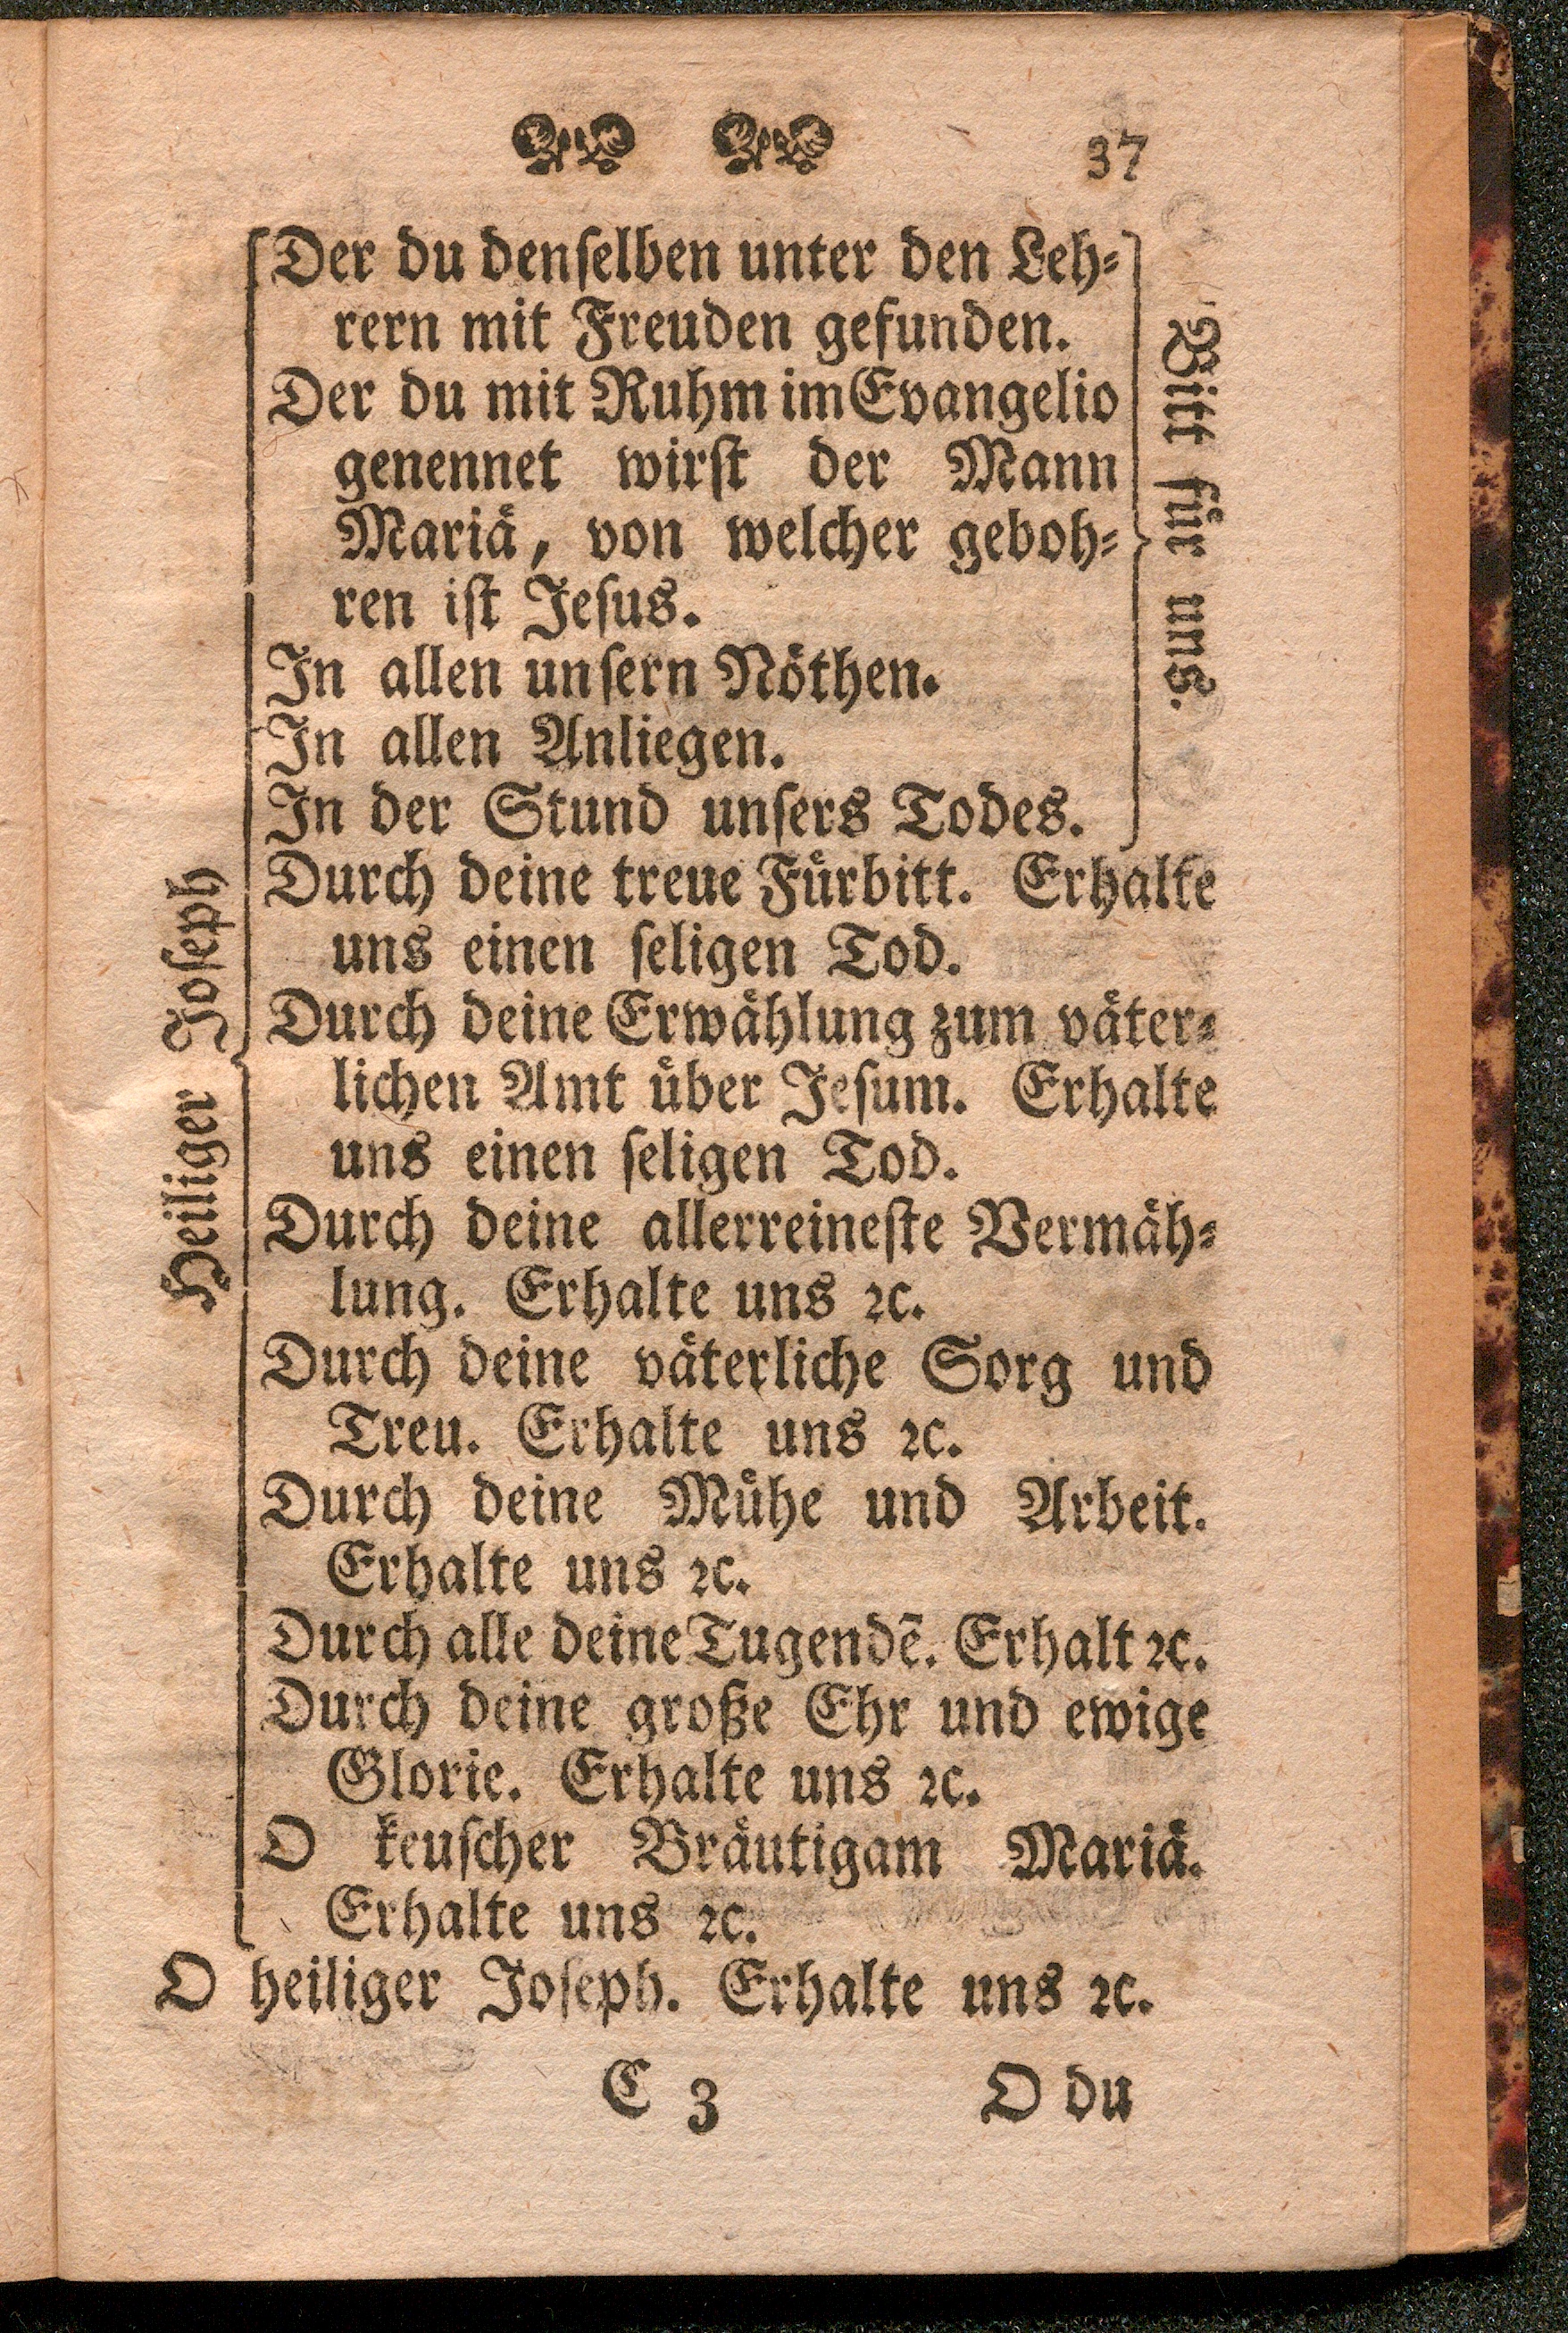 37
Der du denſelben unter den Leh⸗
rern mit Freuden gefunden.
Der du mit Ruhm im Evangelio
genennet wirſt der Mann
Mariaͤ, von welcher geboh⸗
ren iſt Jeſus.
In allen unſern Noͤthen.
In allen Anliegen.
In der Stund unſers Todes.
Bitt fuͤr uns.
Heiliger Joſeph
Durch deine treue Fuͤrbitt. Erhalte
uns einen ſeligen Tod.
Durch deine Erwaͤhlung zum vaͤter⸗
lichen Amt uͤber Jeſum. Erhalte
uns einen ſeligen Tod.
Durch deine allerreineſte Vermaͤh⸗
lung. Erhalte uns ꝛc.
Durch deine vaͤterliche Sorg und
Treu. Erhalte uns ꝛc.
Durch deine Muͤhe und Arbeit.
Erhalte uns ꝛc.
Durch alle deine Tugendẽ. Erhalt ꝛc.
Durch deine große Ehr und ewige
Glorie. Erhalte uns ꝛc.
O keuſcher Braͤutigam Mariaͤ.
Erhalte uns ꝛc.
O heiliger Joſeph. Erhalte uns ꝛc.
C 3 O du